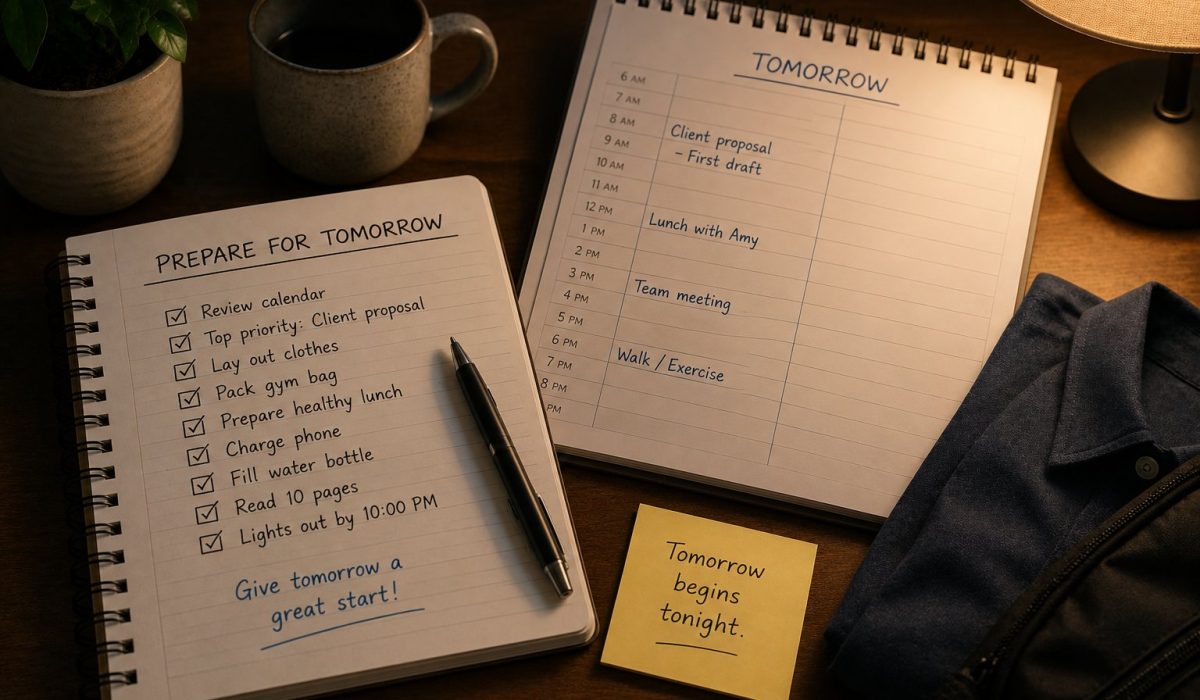 PREPARE FOR TOMORROW
Review calendar
Top priority: Client proposal
Lay out clothes
Pack gym bag
Prepare healthy lunch
Charge phone
Fill water bottle
Read 10 pages
Lights out by 10:00 PM
Give tomorrow a
great start!
TOMORROW
6 AM
7 AM
8 AM
Client proposal
9 AM
– First draft
10 AM
11 AM
12 PM
Lunch with Amy
1 PM
2 PM
3 PM
Team meeting
4 PM
5 PM
6 PM
Walk / Exercise
7 PM
8 PM
PM
Tomorrow
begins
tonight.